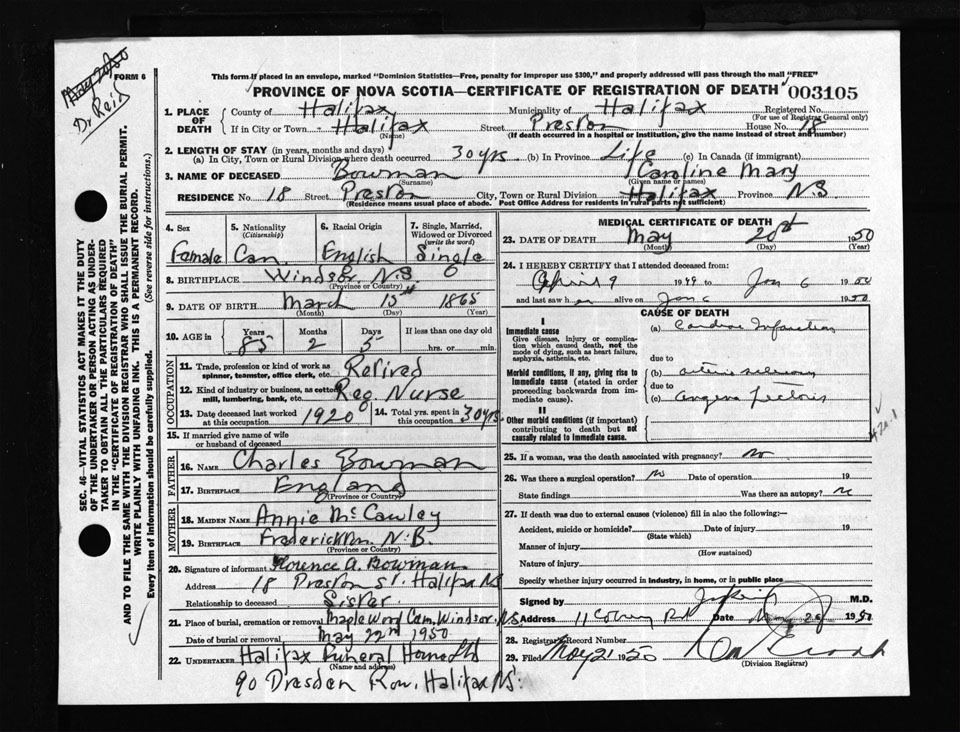 May 20/50
Dr Reid
FORM 6
This form if placed in an envelope, marked "Dominion Statistics—Free, penalty for improper use $300," and properly addressed will pass through the mail "FREE"
PROVINCE OF NOVA SCOTIA—CERTIFICATE OF REGISTRATION OF DEATH 003105
1. PLACE OF DEATH
County of Halifax Municipality of Halifax Registered No.
(For use of Registrar General only)
If in City or Town - Halifax Street Preston House No. 18
(Name) (If death occurred in a hospital or institution, give the name instead of street and number)
2. LENGTH OF STAY (in years, months and days)
(a) In City, Town or Rural Division where death occurred 30 yrs. (b) In Province Life (c) In Canada (if immigrant)
3. NAME OF DECEASED Bowman Caroline Mary
(Surname) (Given name or names)
RESIDENCE No. 18 Street Preston City, Town or Rural Division Halifax Province N.S
(Residence means usual place of abode. Post Office Address for residents in rural parts not sufficient)
4. Sex 5. Nationality (Citizenship) 6. Racial Origin 7. Single, Married, Widowed or Divorced (write the word)
Female Can. English Single
8. BIRTHPLACE Windsor N.S
(Province or Country)
9. DATE OF BIRTH March 15th 1865
(Month) (Day) (Year)
10. AGE in Years Months Days If less than one day old
85 2 5 hrs. or min.
OCCUPATION
11. Trade, profession or kind of work as spinner, teamster, office clerk, etc. Retired
12. Kind of industry or business, as cotton mill, lumbering, bank, etc. Reg. Nurse
13. Date deceased last worked at this occupation 1920 14. Total yrs. spent in this occupation 30 yrs.
15. If married give name of wife or husband of deceased
FATHER
16. NAME Charles Bowman
17. BIRTHPLACE England
(Province or Country)
MOTHER
18. MAIDEN NAME Annie McCawley
19. BIRTHPLACE Fredericton N.B.
(Province or Country)
20. Signature of informant Florence A. Bowman
Address 18 Preston St. Halifax NS
Relationship to deceased Sister
21. Place of burial, cremation or removal Maplewood Cem, Windsor. N.S.
Date of burial or removal May 22nd 1950
22. UNDERTAKER Halifax Funeral Home Ltd
(Name and address)
90 Dresden Row. Halifax N.S.
MEDICAL CERTIFICATE OF DEATH
23. DATE OF DEATH May 20th 1950
(Month) (Day) (Year)
24. I HEREBY CERTIFY that I attended deceased from:
April 9 1949 to Jan 6 1950
and last saw her alive on Jan 6 1950
CAUSE OF DEATH
I
Immediate cause
Give disease, injury or complication which caused death, not the mode of dying, such as heart failure, asphyxia, asthenia, etc.
(a) Cardiac Infarction
due to
Morbid conditions, if any, giving rise to immediate cause (stated in order proceeding backwards from immediate cause).
(b)
due to
(c) Angina Pectoris
II
Other morbid conditions (if important) contributing to death but not causally related to immediate cause.
420.1
25. If a woman, was the death associated with pregnancy? No
26. Was there a surgical operation? No Date of operation 19
State findings Was there an autopsy? No
27. If death was due to external causes (violence) fill in also the following:—
Accident, suicide or homicide? Date of injury 19
(State which)
Manner of injury
(How sustained)
Nature of injury
Specify whether injury occurred in industry, in home, or in public place
Signed by M.D.
Address 11 Date 1950
28. Registrar's Record Number
29. Filed May 21 1950
(Division Registrar)
SEC. 46—VITAL STATISTICS ACT MAKES IT THE DUTY
OF THE UNDERTAKER OR PERSON ACTING AS UNDER-
TAKER TO OBTAIN ALL THE PARTICULARS REQUIRED
IN THE "CERTIFICATE OF REGISTRATION OF DEATH"
AND TO FILE THE SAME WITH THE DIVISION REGISTRAR WHO SHALL ISSUE THE BURIAL PERMIT.
WRITE PLAINLY WITH UNFADING INK. THIS IS A PERMANENT RECORD.
Every item of Information should be carefully supplied. (See reverse side for instructions.)